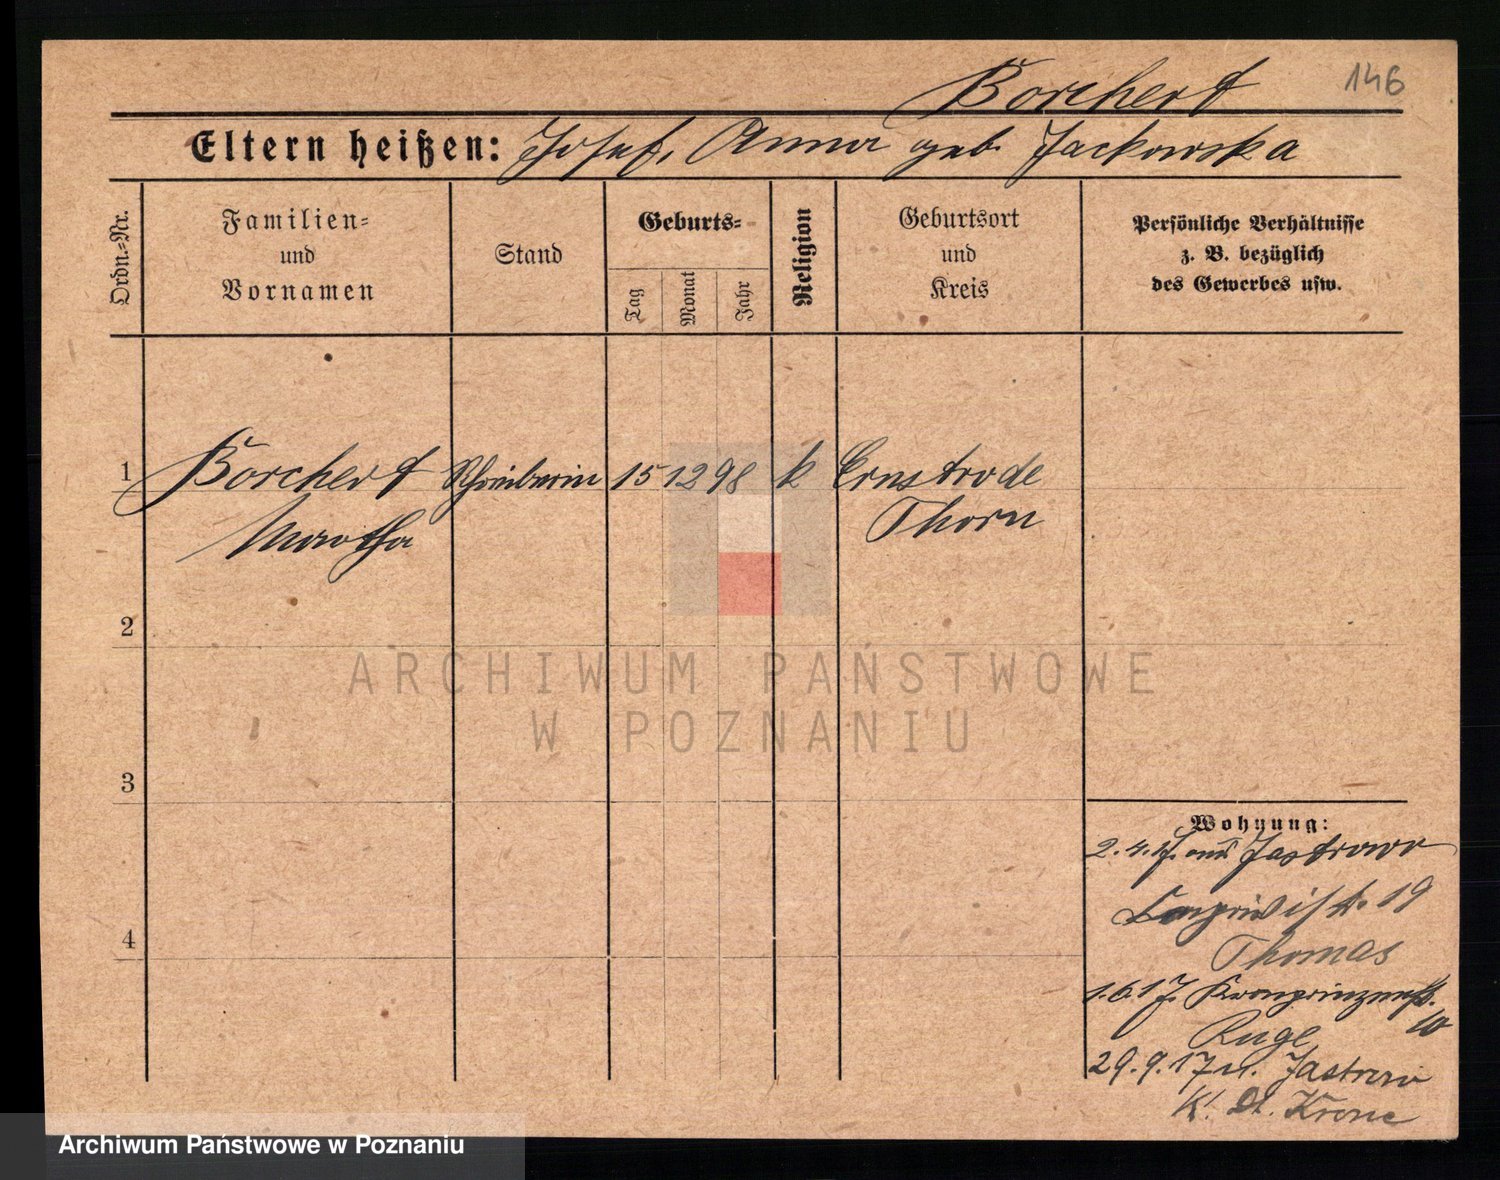 Borchert 146
Eltern heißen: Josef, Anna geb. Jackowska
Ordn.=Nr.
Familien=
und
Vornamen
Stand
Geburts=
Tag
Monat
Jahr
Religion
Geburtsort
und
Kreis
Persönliche Verhältnisse
z. B. bezüglich
des Gewerbes usw.
1 Borchert Schreiberin 15 12 98 k Ernstrode
Martha Thorn
2
3
4
Wohnung:
2.4.17. aus Jastrow
19
Thomas
1.6.17. Kronprinzenstr.
10
Ruge
29.9.17 n. Jastrow
K. Dt. Krone
ARCHIWUM PAŃSTWOWE
W POZNANIU
Archiwum Państwowe w Poznaniu